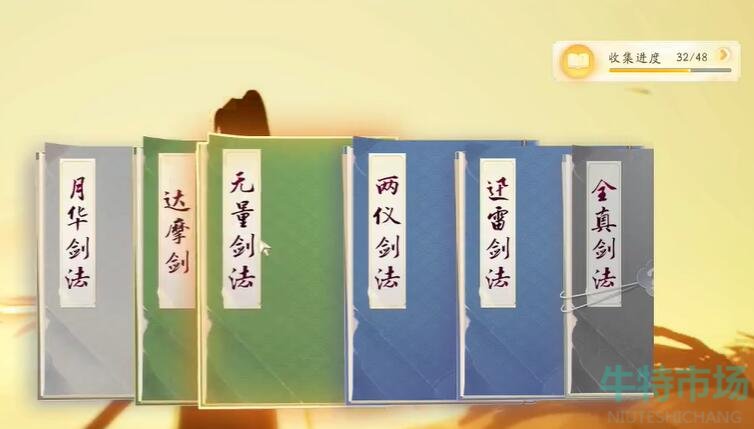 收集进度 32/48
月华剑法
达摩剑
无量剑法
两仪剑法
迅雷剑法
全真剑法
牛特市场
NIUTESHICHANG